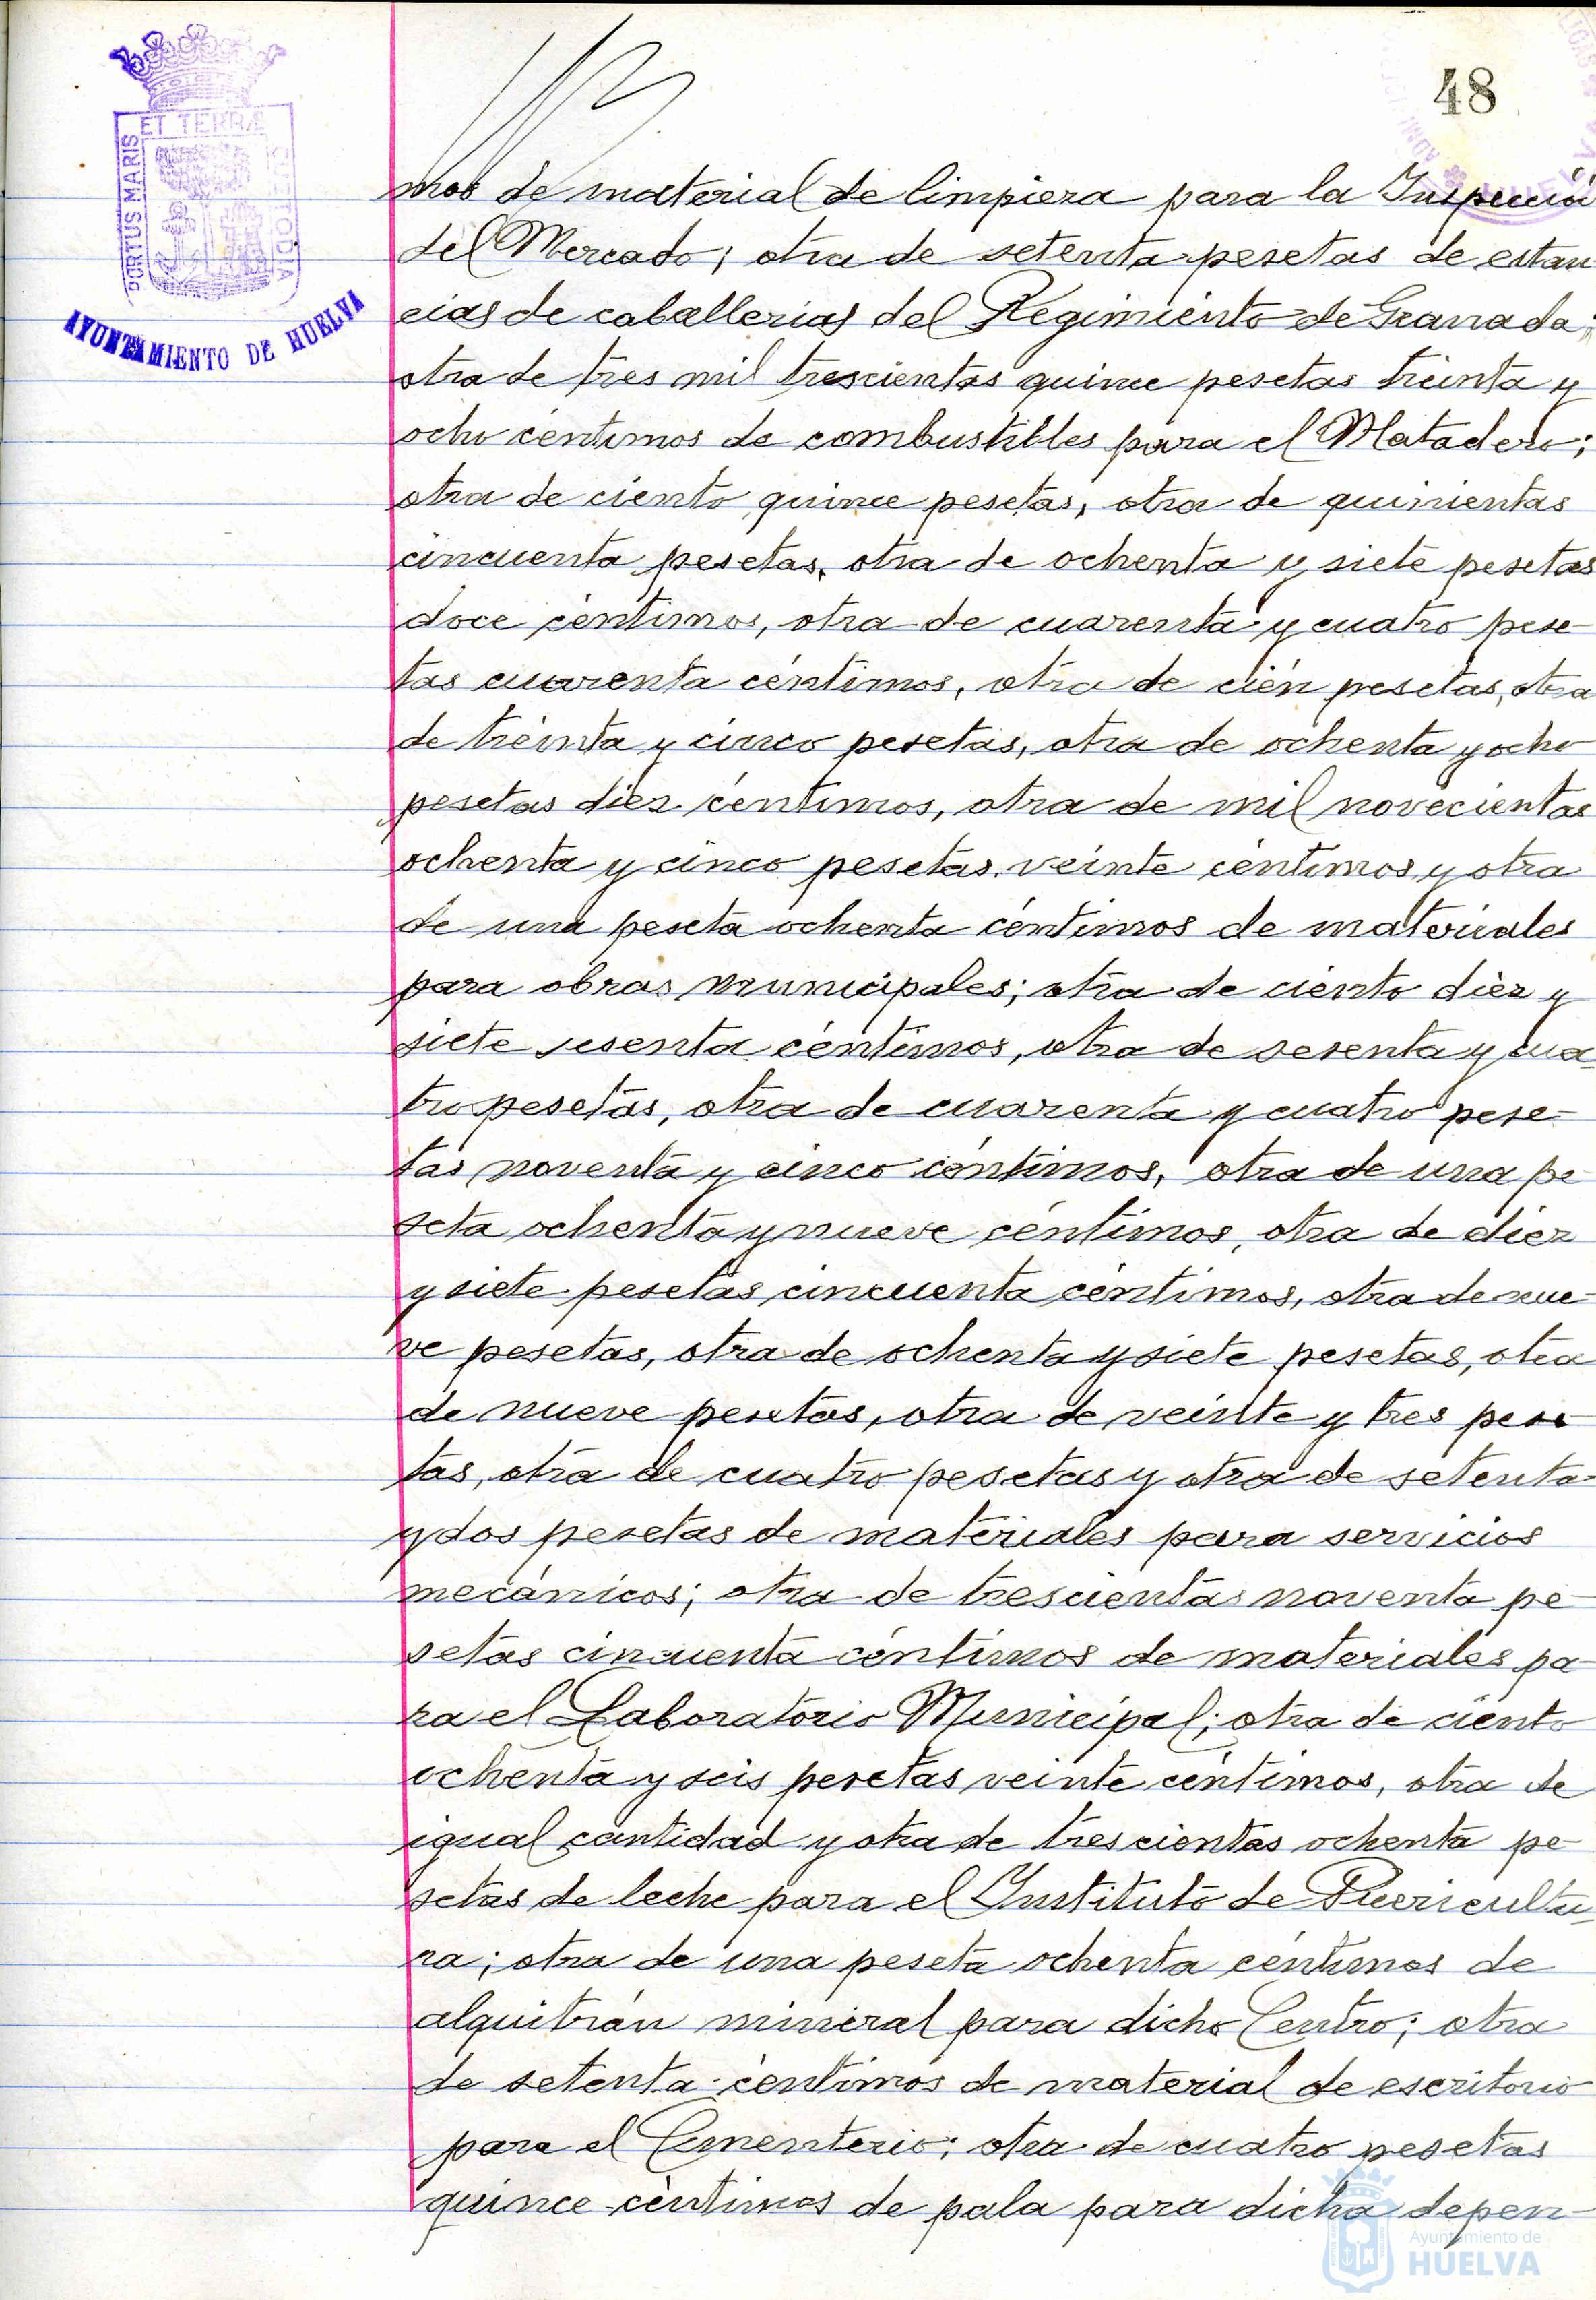 48
PORTUS MARIS
ET TERRÆ
CUSTODIA
AYUNTAMIENTO DE HUELVA
mos de material de limpieza para la Inspección
del Mercado; otra de setenta pesetas de estan
cias de caballerias del Regimiento de Granada;
otra de tres mil trescientas quince pesetas treinta y
ocho céntimos de combustibles para el Matadero;
otra de ciento quince pesetas, otra de quinientas
cincuenta pesetas, otra de ochenta y siete pesetas
doce céntimos, otra de cuarenta y cuatro pese-
tas cuarenta céntimos, otra de cien pesetas, otra
de treinta y cinco pesetas, otra de ochenta y ocho
pesetas diez céntimos, otra de mil novecientas
ochenta y cinco pesetas veinte céntimos y otra
de una peseta ochenta céntimos de materiales
para obras municipales; otra de ciento diez y
siete sesenta céntimos, otra de sesenta y cua-
tro pesetas, otra de cuarenta y cuatro pese-
tas noventa y cinco céntimos, otra de una pe-
seta ochenta y nueve céntimos, otra de diez
y siete pesetas cincuenta céntimos, otra de nue-
ve pesetas, otra de ochenta y siete pesetas, otra
de nueve pesetas, otra de veinte y tres pese
tas, otra de cuatro pesetas y otra de setenta
y dos pesetas de materiales para servicios
mecánicos; otra de trescientas noventa pe-
setas cincuenta céntimos de materiales pa-
ra el Laboratorio Municipal; otra de ciento
ochenta y seis pesetas veinte céntimos, otra de
igual cantidad y otra de trescientas ochenta pe-
setas de leche para el Instituto de Puericultu-
ra; otra de una peseta ochenta céntimos de
alquitrán mineral para dicho Centro; otra
de setenta céntimos de material de escritorio
para el Cementerio; otra de cuatro pesetas
quince céntimos de pala para dicha depen-
Ayuntamiento de
HUELVA